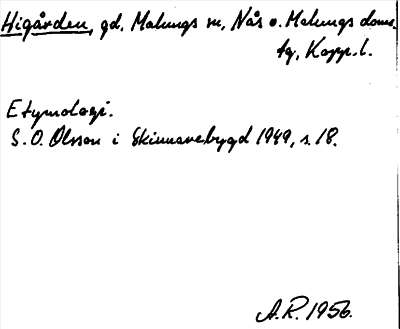 Higården, gd, Malungs sn, Nås o. Malungs doms.
tg, Kopp. l.
Etymologi.
S. O. Olsson i Skinnarebygd 1949, s. 18.
A. R. 1956.